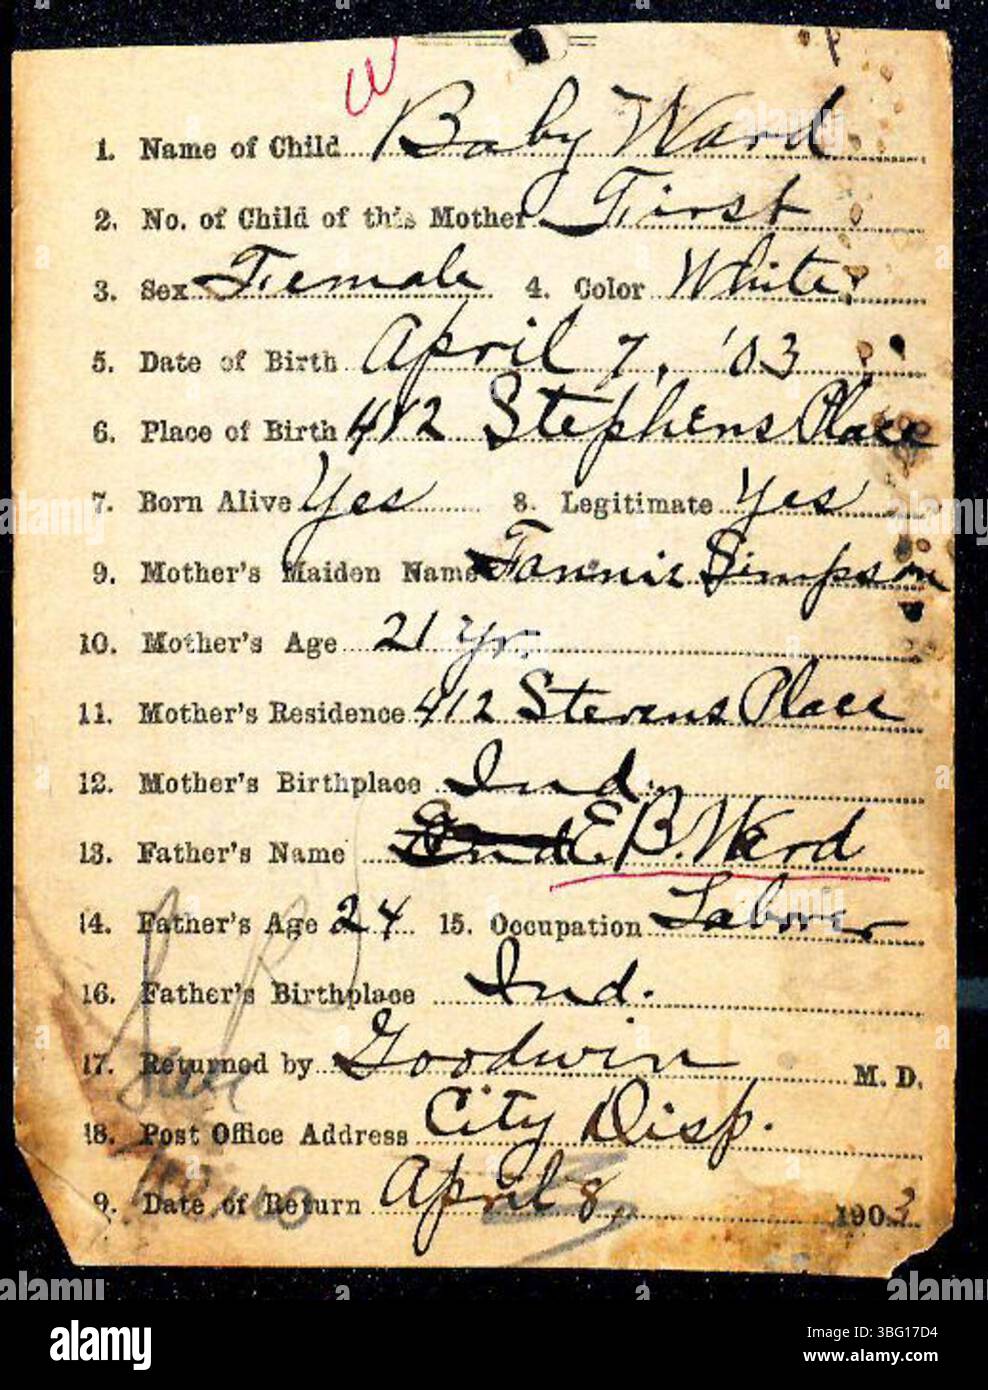 W
1. Name of Child Baby Ward
2. No. of Child of this Mother First
3. Sex Female 4. Color White
5. Date of Birth April 7, '03
6. Place of Birth 412 Stephens Place
7. Born Alive Yes 8. Legitimate Yes
9. Mother's Maiden Name Fannie Simpson
10. Mother's Age 21 yr.
11. Mother's Residence 412 Stevens Place
12. Mother's Birthplace Ind.
13. Father's Name E B. Ward
14. Father's Age 24 15. Occupation Laborer
16. Father's Birthplace Ind.
17. Returned by Goodwin M. D.
18. Post Office Address City Disp.
9. Date of Return April 8, 1903
alamy
Image ID: 3BG17D4
www.alamy.com